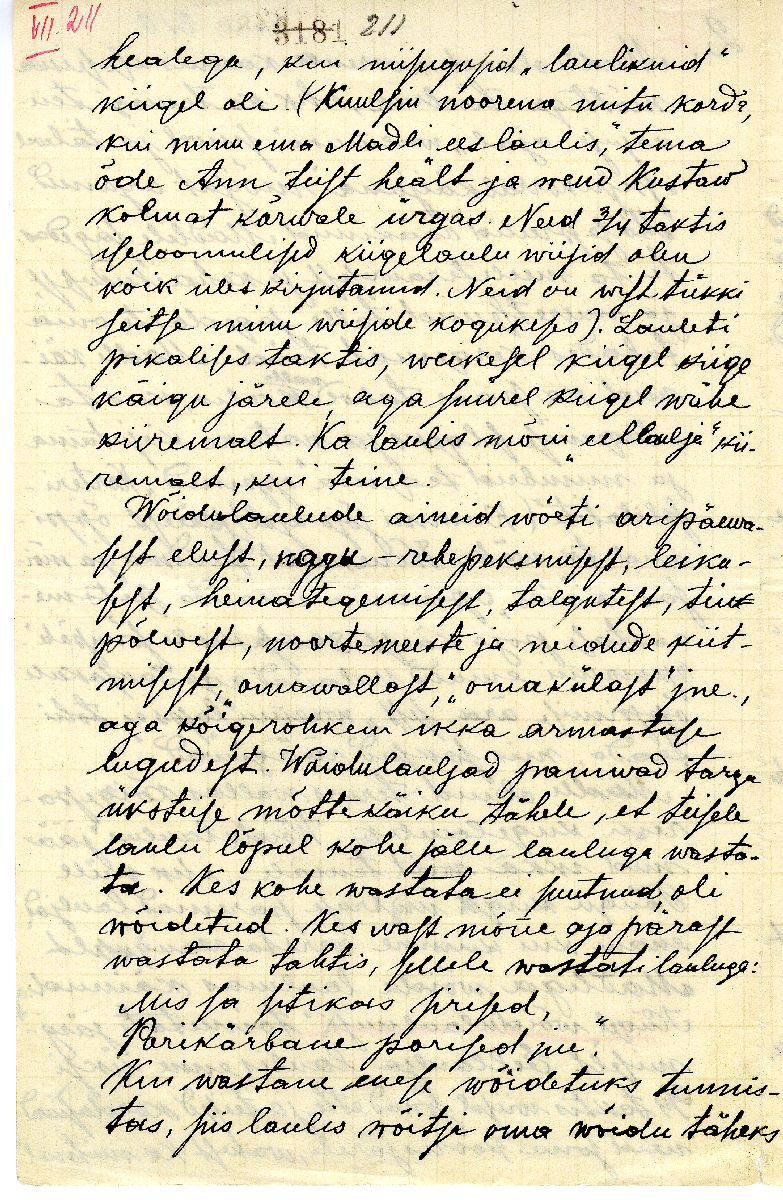 VII 211
3181 211
healega, kui niisugusid „laulikuid“
kiigel oli. (Kuulsin noorena mitu korda,
kui minu ema Madli eeslaulis, tema
õde Ann teist heält ja wend Kustaw
kolmat kõrwale ürgas. Need 3/4 taktis
iseloomulised kiigelaulu wiisid olen
kõik üles kirjutanud. Neid on wist tükki
seitse minu wiiside kogukeses). Lauleti
pikalises taktis, weikesel kiigel kiige
käigu järele, aga suurel kiigel wähe
kiiremalt. Ka laulis mõni „eellaulja“ kii-
remalt, kui teine.
Wõidulaulude aineid wõeti aripäewa-
sest elust, nagu – rehepeksmisest, leiku-
sest, heinategemisest, talgutest,
põlwest, noortemeeste ja neidude kiit-
misest, „omawallast“, „omakülast“ jne.,
aga kõigerohkem ikka armastuse
lugudest. Wõidulauljad paniwad targu
üksteise mõttekäiku tähele, et teisele
laulu lõpul kohe jälle lauluga wasta-
ta. Kes kohe wastata ei suutnud, oli
wõidetud. Kes wast mõne aja pärast
wastata tahtis, sellele wastati lauluga:
Mis sa sitikas sirised,
Porikärbane porised jne.“
Kui wastane enese wõidetuks tunnis-
tas, siis laulis wõitja oma wõidu täheks